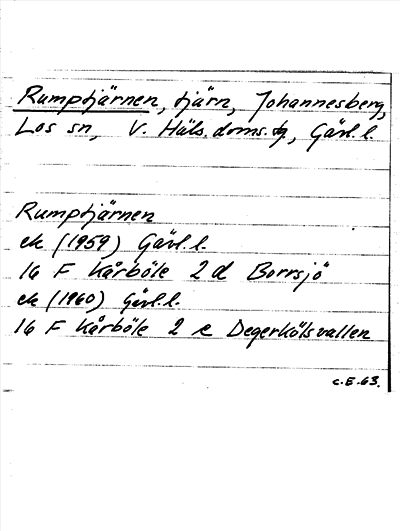 Rumptjärnen, tjärn, Johannesberg,
Los sn, V. Häls. doms. tg, Gävl. l.
Rumptjärnen
ek (1959) Gävl. l.
16 F Kårböle 2 d Borrsjö
ek (1960) Gävl. l.
16 F Kårböle 2 e Degerkölsvallen
C.E. 63.